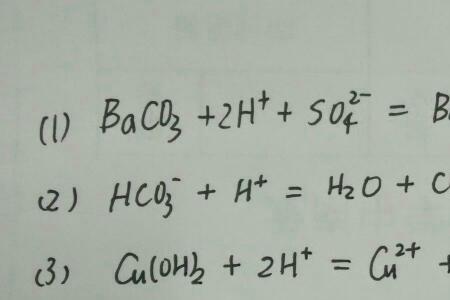 (1) BaCO₃ + 2H⁺ + SO₄²⁻ = B
(2) HCO₃⁻ + H⁺ = H₂O + C
(3) Cu(OH)₂ + 2H⁺ = Cu²⁺ +